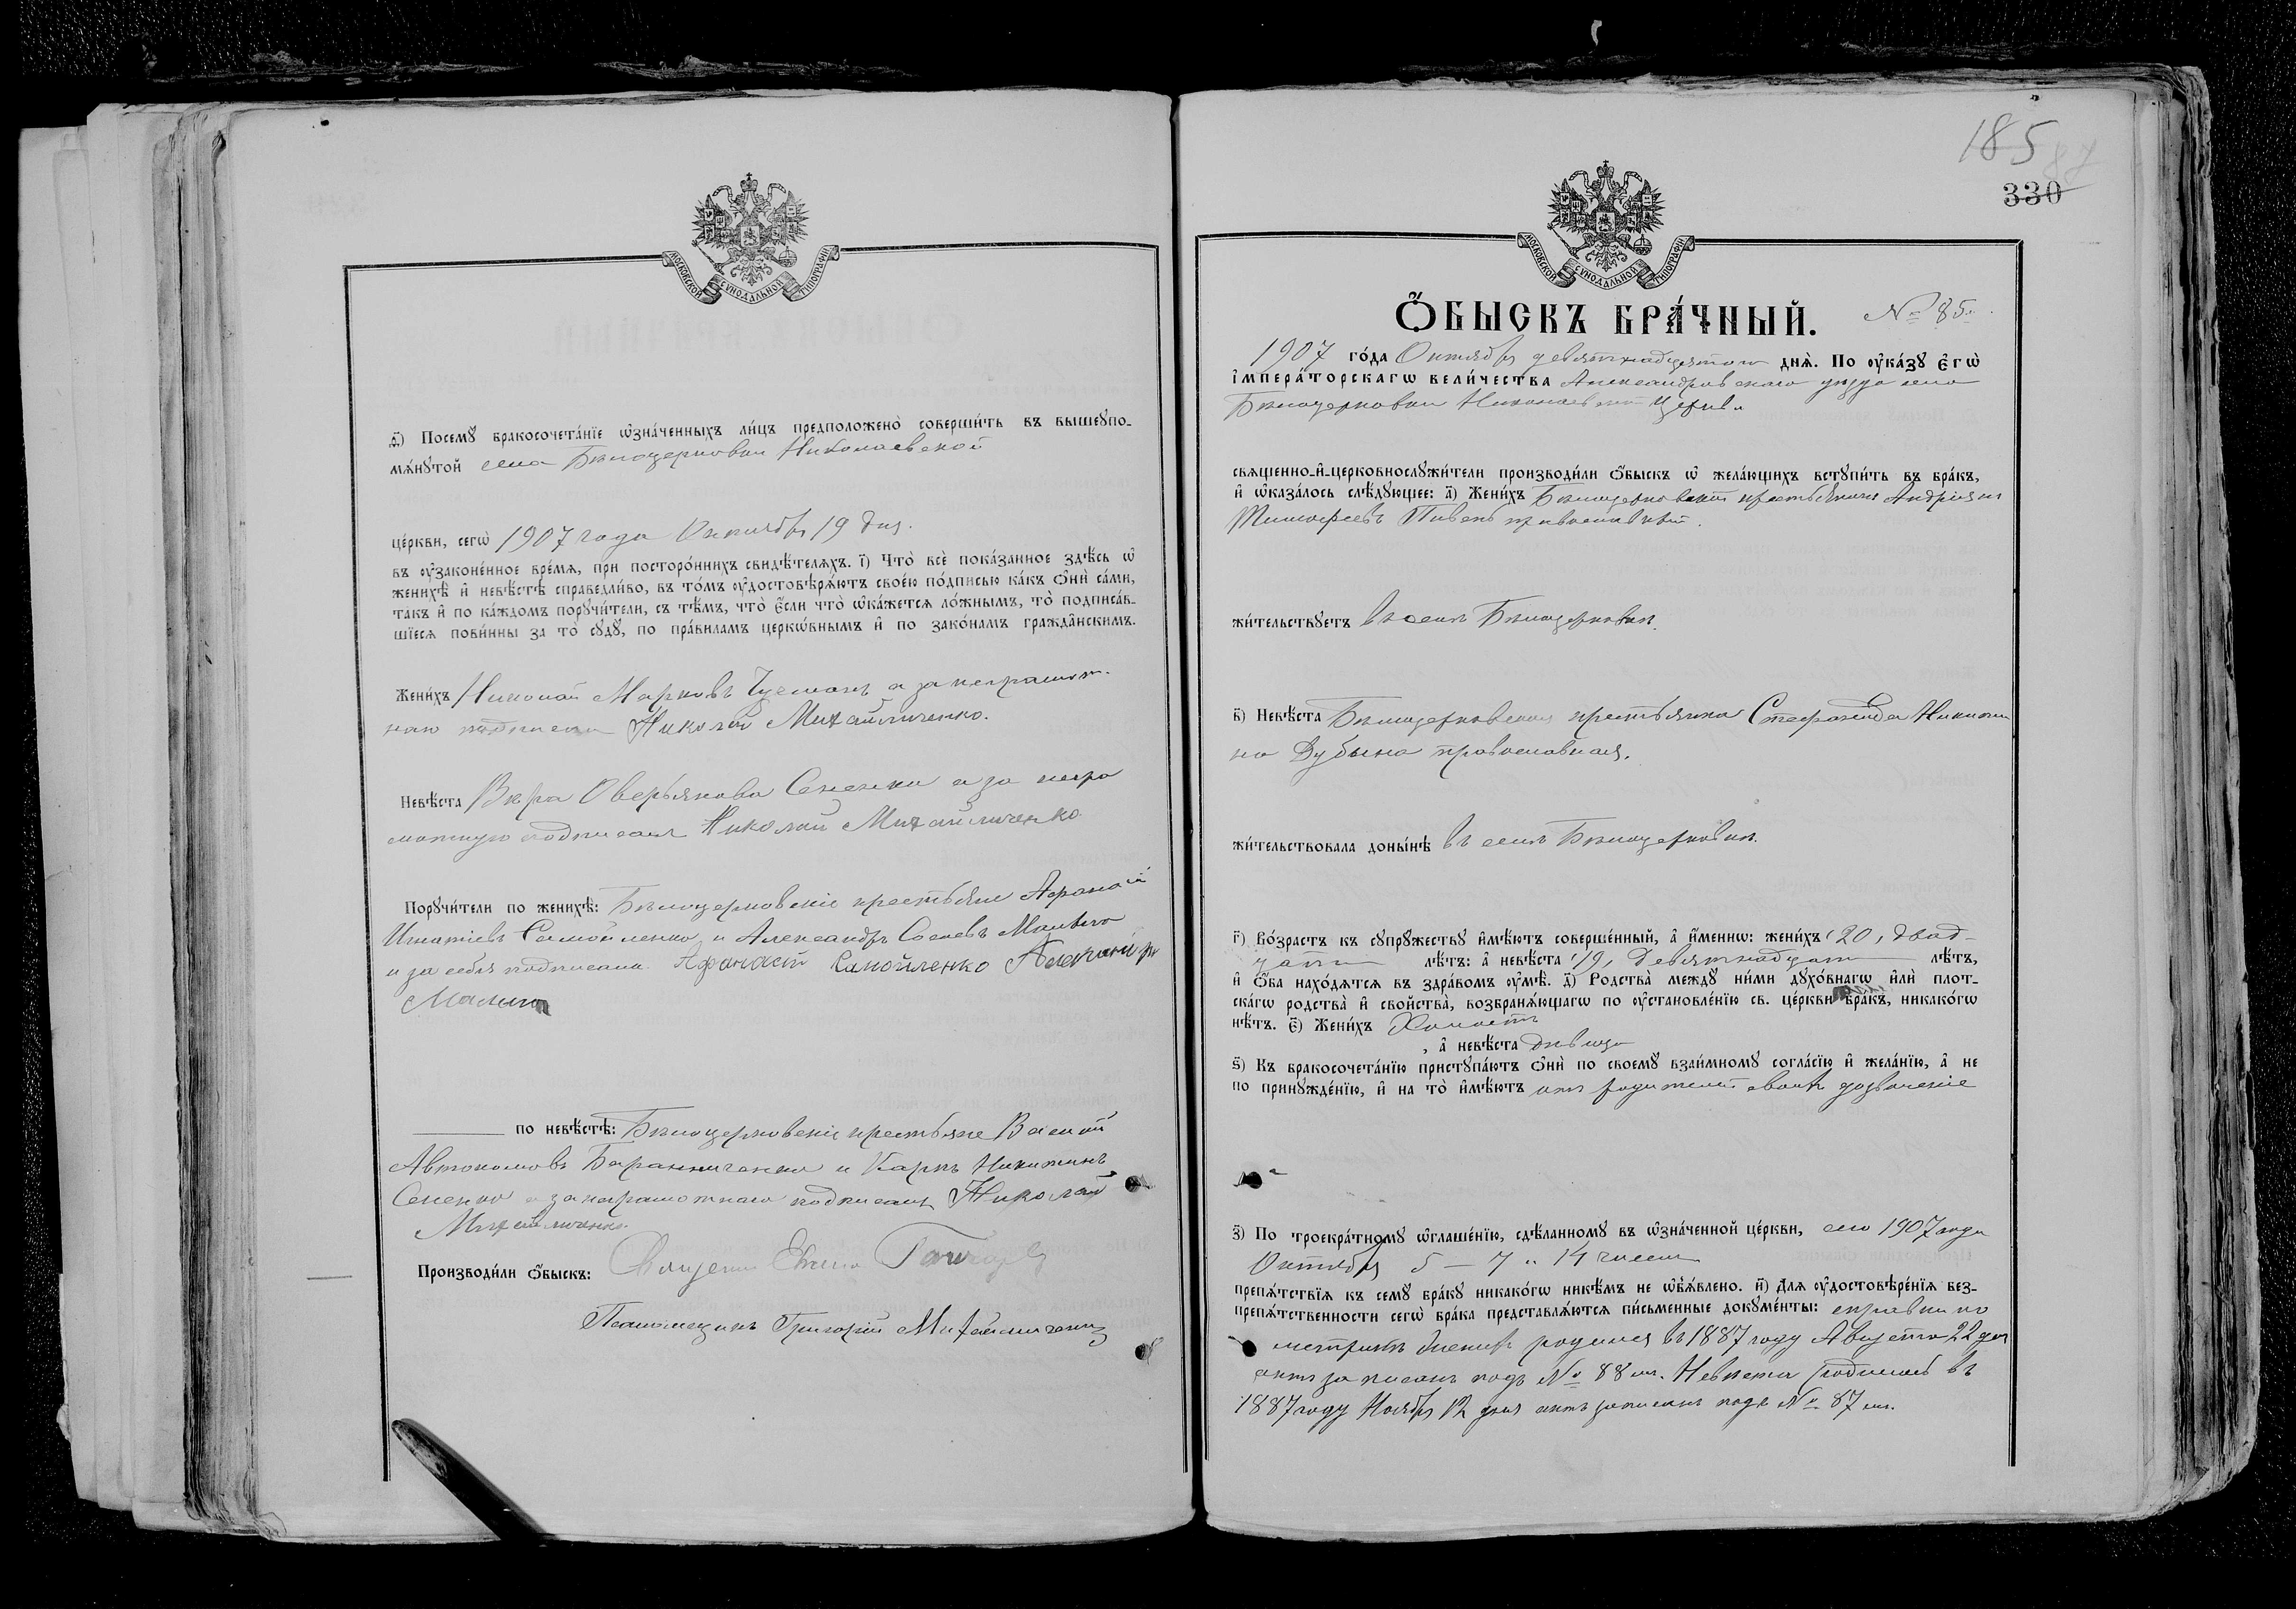 МОСКОВСКОЙ СѴНОДАЛЬНОЙ ТИПОГРАФІИ
д҃і) Посемꙋ бракосочета́нїе ѡ҆зна́ченныхъ ли́цъ предположено̀ соверши́ть въ вышеꙋпо-
мѧ́нꙋтой села Бѣлоцерковки Николаевской
це́ркви, сегѡ̀ 1907 года Октября 19 дня.
въ ᲂу҆законе́нное вре́мѧ, при посторо́ннихъ свидѣ́телѧхъ. і҃) Что̀ всѐ пока́занное здѣ́сь ѡ҆
женихѣ̀ и҆ невѣ́стѣ справедли́во, въ то́мъ ᲂу҆достовѣрѧ́ютъ свое́ю по́дписью ка́къ ѻ҆нѝ са́ми,
та́къ и҆ по ка́ждомъ порꙋчи́тели, съ тѣ́мъ, что̀ є҆́сли что̀ ѡ҆ка́жетсѧ ло́жнымъ, то̀ подписа́в-
шїесѧ пови́нны за то̀ сꙋдꙋ̀, по пра́виламъ церкѡ́внымъ и҆ по зако́намъ гражда̂нскимъ.
Жени́хъ Николай Марковъ а за неграмот-
наго подписалъ Николай Михайличенко.
Невѣ́ста Вера Оверьянова Сененко а за негра
мотную подписалъ Николай Михайличенко
Порꙋчи́тели по женихѣ̀: Бѣлоцерковскіе крестьяне Афанасій
Игнатіевъ Самойленко и Александръ
и за себя подписали Афанасій Самойленко Александръ
по невѣ́стѣ: Бѣлоцерковскіе крестьяне Василій
Автономовъ и Карпъ Никитинъ
Сененко а за неграмотнаго подписалъ Николай
Михайличенко.
Производи́ли ѻ҆́быскъ: Священникъ
Псаломщикъ Григорій Михайличенко
185
87
330
МОСКОВСКОЙ СѴНОДАЛЬНОЙ ТИПОГРАФІИ
Ѻ҆́БЫСКЪ БРА́ЧНЫЙ. № 85.
1907 го́да Октября девятнадцатого днѧ̀. По ᲂу҆ка́зꙋ Є҆гѡ̀
і҆мпера́торскагѡ вели́чества Александровскаго уезда села
Бѣлоцерковки Николаевской церкви
свѧще́нно-и҆-церковнослꙋжи́тели производи́ли ѻ҆́быскъ ѡ҆ жела́ющихъ встꙋпи́ть въ бра́къ,
и҆ ѡ҆каза́лось слѣ́дꙋющее: а҃) Жени́хъ Бѣлоцерковскій крестьянинъ Андріянъ
Тимофеевъ Пивень православный.
жи́тельствꙋетъ въ селѣ Бѣлоцерковкѣ.
в҃) Невѣ́ста Бѣлоцерковская крестьянка Стефанида
на Дубына православная.
жи́тельствовала доны́нѣ въ селѣ Бѣлоцерковкѣ.
г҃) Во́зрастъ къ сꙋпрꙋ́жествꙋ и҆мѣ́ютъ соверше́нный, а҆ и҆́менно: жени́хъ 20, двад-
цати лѣ́тъ: а҆ невѣ́ста 19, девятнадцати лѣ́тъ,
и҆ ѻ҆́ба нахо́дѧтсѧ въ здра́вомъ ᲂу҆мѣ̀. д҃) Родства̀ междꙋ̀ ни́ми дꙋхо́внагѡ и҆лѝ плот-
ска́гѡ родства̀ и҆ сво́йства̀, возбранѧ́ющагѡ по ᲂу҆становле́нїю св. це́ркви бра́къ, никако́гѡ
нѣ́тъ. є҃) Жени́хъ Холостъ
, а҆ невѣ́ста дѣвица
ѕ҃) Къ бракосочета́нїю пристꙋпа́ютъ ѻ҆нѝ по своемꙋ̀ взаи́мномꙋ согла́сїю и҆ жела́нїю, а҆ не
по принꙋжде́нїю, и҆ на то̀ и҆мѣ́ютъ отъ родителей своихъ дозволеніе
з҃) По троекра́тномꙋ ѡ҆глаше́нїю, сдѣ́ланномꙋ въ ѡ҆зна́ченной це́ркви, сего 1907 года
Октября 5 — 7 и 14 числа
препѧ́тствїѧ къ семꙋ̀ бра́кꙋ никако́гѡ никѣ́мъ не ѡ҆б̾ѧ́влено. и҃) Длѧ ᲂу҆достовѣре́нїѧ без-
препѧ́тственности сегѡ̀ бра́ка представлѧ́ютсѧ пи́сьменные докꙋме́нты: справки по
метрикѣ Женихъ родился въ 1887 году Августа 22 дня
актъ записанъ подъ № 88 мъ. Невѣста родилась въ
1887 году Ноября 12 дня актъ записанъ подъ № 87 мъ.